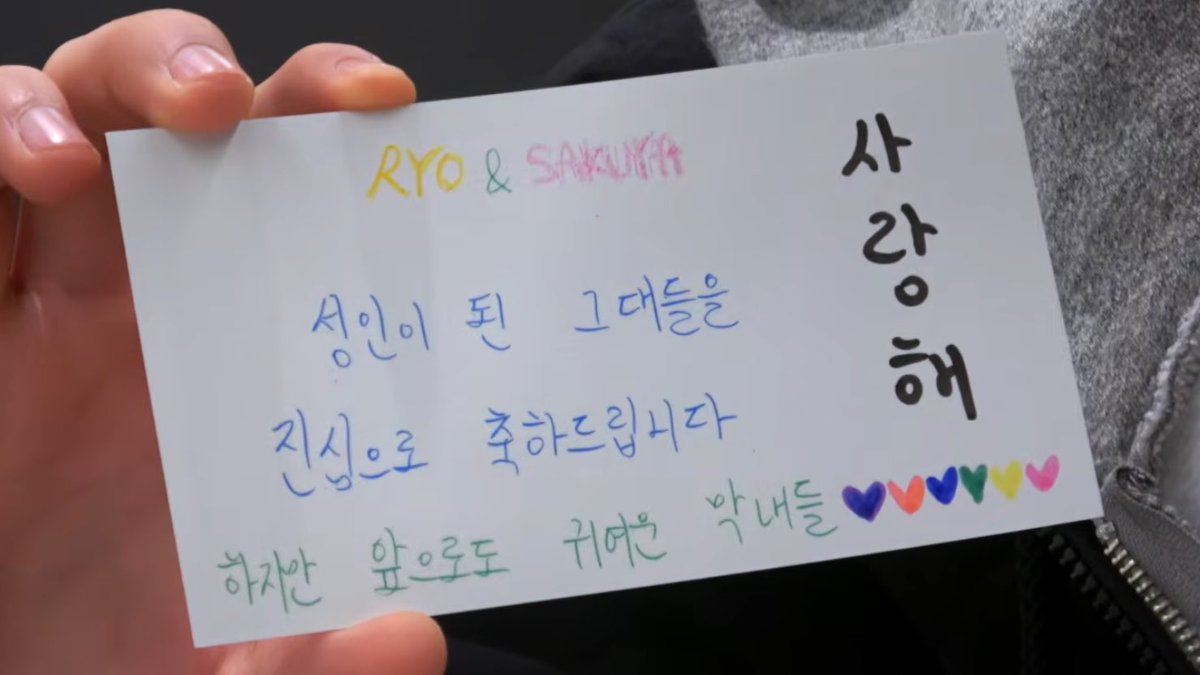 RYO & SAKUYA
성인이 된 그대들을
진심으로 축하드립시다
하지만 앞으로도 귀여운 막내들
사
랑
해